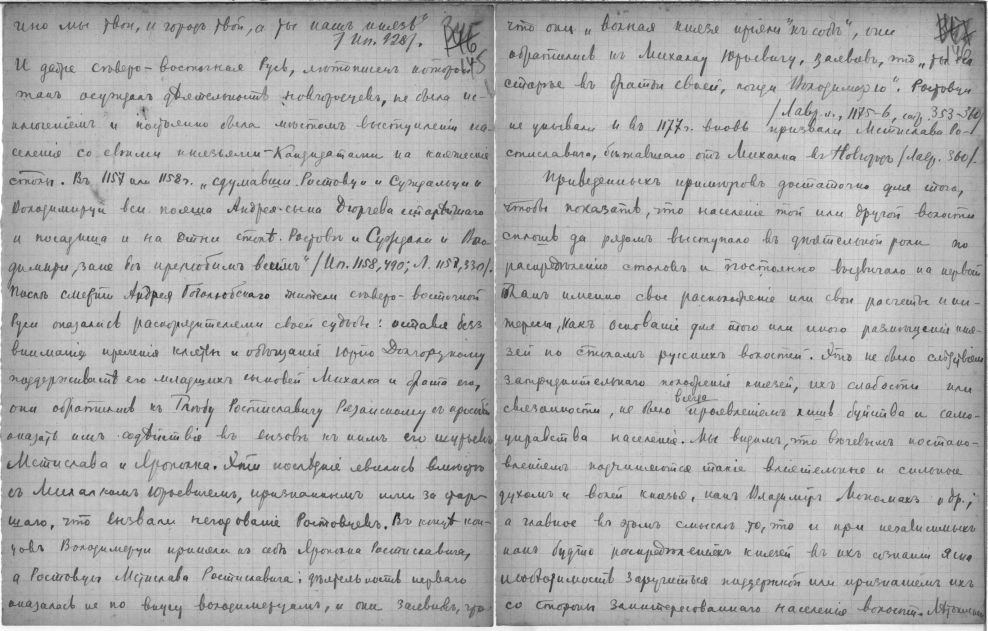 ино мы твои, и городъ твой, а ты нашъ князь"
/Ип. 928/.
145
И далѣе сѣверо-восточная Русь, лѣтописецъ которой
такъ осуждалъ дѣятельность новгородцевъ, не была ис-
ключеніемъ и постоянно была мѣстомъ выступленій на-
селенія со своими князьями-кандидатами на княжескіе
столы. Въ 1157 или 1158 г. „сдумавши Ростовци и Суждальци и
Володимирци вси пояша Андрея сына Дюргева старѣйшаго
и посадиша и на отни столѣ Ростовѣ и Суждали и Воло-
димири, зане бѣ прелюбимъ всѣмъ" /Ип. 1158, 490; Л. 1158, 330/.
Послѣ смерти Андрея Боголюбскаго жители сѣверо-восточной
Руси оказались распорядителями своей судьбы: оставя безъ
вниманія прежнія клятвы и обѣщаніе Юрію Долгорукому
поддерживать его младшихъ сыновей Михалка и брата его,
они обратились къ Глѣбу Ростиславичу Рязанскому съ просьбой
оказать имъ содѣйствіе въ вызовѣ къ нимъ его шурьевъ
Мстислава и Ярополка. Эти послѣдніе явились вмѣстѣ
съ Михалкомъ Юрьевичемъ, признаннымъ ими за стар-
шаго, что вызвало негодованіе Ростовцевъ. Въ концѣ кон-
цовъ Володимерци приняли къ себѣ Ярополка Ростиславича,
а Ростовцы Мстислава Ростиславича; дѣятельность перваго
оказалась не по вкусу володимерцамъ, и они заявивъ, что
что они „волная князя прияли къ собѣ", они
146
обратились къ Михалку Юрьевичу, заявивъ, что „ты
старѣе въ братьи своей, поиди Володимерю". Ростовци
/Лавр. л., 1175-6, стр. 353-360/
не унывали и въ 1177 г. вновь призвали Мстислава Ро-
стиславича, бѣжавшаго отъ Михалка въ Новгородъ /Лавр. 360/.
Приведенныхъ примѣровъ достаточно для того,
чтобы показать, что населеніе той или другой волости
сплошь да рядомъ выступало въ дѣятельной роли по
распредѣленію столовъ и постоянно выдвигало на первый
планъ именно свое расположеніе или свои расчеты и ин-
тересы, какъ основаніе для того или иного размѣщенія кня-
зей по столамъ русскихъ волостей. Это не было слѣдствіемъ
затруднительнаго положенія князей, ихъ слабости или
связанности, не было всегда проявленіемъ лишь буйства и само-
управства населенія. Мы видимъ, что вѣчевымъ постано-
вленіямъ подчиняются такіе вліятельные и сильные
духомъ и волей князья, какъ Владиміръ Мономахъ и др.;
а главное въ этомъ смыслѣ то, что и при независимыхъ
какъ будто распредѣленіяхъ князей въ ихъ сознаніи ясна
необходимость заручиться поддержкой или признаніемъ ихъ
со стороны заинтересованнаго населенія волости.